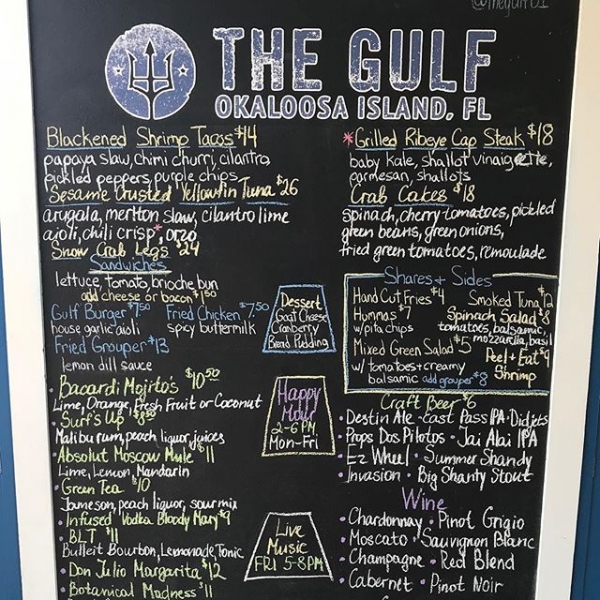 @thegulf01
THE GULF
OKALOOSA ISLAND, FL
Blackened Shrimp Tacos $14
papaya slaw, chimi churri, cilantro,
pickled peppers, purple chips
Sesame Crusted Yellowfin Tuna $26
arugala, merlton slaw, cilantro lime
aioli, chili crisp*, orzo
Snow Crab Legs $24
Sandwiches
lettuce, tomato, brioche bun
add cheese or bacon $1.50
Gulf Burger $7.50
house garlic aioli
Fried Chicken $7.50
spicy buttermilk
Fried Grouper $13
lemon dill sauce
*Grilled Ribeye Cap Steak $18
baby kale, shallot vinaigrette,
parmesan, shallots
Crab Cakes $18
spinach, cherry tomatoes, pickled
green beans, green onions,
fried green tomatoes, remoulade
Dessert
Goat Cheese
Cranberry
Bread Pudding
Shares + Sides
Hand Cut Fries $4
Hummas $7
w/pita chips
Mixed Green Salad $5
w/ tomatoes + creamy
balsamic add grouper $8
Smoked Tuna $12
Spinach Salad $8
tomatoes, balsamic,
mozzarella, basil
Peel + Eat $9
Shrimp
• Bacardi Mojito's $10.50
Lime, Orange, Fresh Fruit or Coconut
• Surf's Up $8.50
Malibu rum, peach liquor, juices
• Absolut Moscow Mule $11
Lime, Lemon, Mandarin
• Green Tea $10
Jameson, peach liquor, sour mix
• Infused Vodka Bloody Mary $9
• BLT $11
Bulleit Bourbon, Lemonade, Tonic
• Don Julio Margarita $12
• Botanical Madness $11
Happy
Hour
2-6 PM
Mon-Fri
Live
Music
FRI 5-8PM
Craft Beer $6
• Destin Ale • East Pass IPA • Didjits
• Props Dos Pilotos • Jai Alai IPA
• EZ Wheel • Summer Shandy
• Invasion • Big Shanty Stout
Wine
• Chardonnay • Pinot Grigio
• Moscato • Sauvignon Blanc
• Champagne • Red Blend
• Cabernet • Pinot Noir